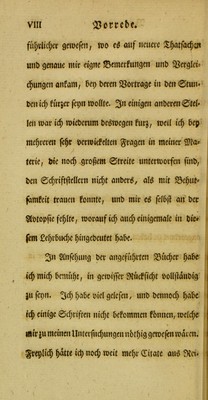 VIII Vorrede.
führlicher gewesen, wo es auf neuere Thatsachen
und genaue mir eigne Bemerkungen und Verglei-
chungen ankam, bey deren Vortrage in den Stun-
den ich kürzer seyn wollte. In einigen anderen Stel-
len war ich wiederum deswegen kurz, weil ich bey
mehreren sehr verwickelten Fragen in meiner Ma-
terie, die noch großem Streite unterworfen sind,
den Schriftstellern nicht anders, als mit Behut-
samkeit trauen konnte, und mir es selbst an der
Autopsie fehlte, worauf ich auch einigemale in die-
sem Lehrbuche hingedeutet habe.
In Ansehung der angeführten Bücher habe
ich mich bemüht, in gewisser Rücksicht vollständig
zu seyn. Ich habe viel gelesen, und dennoch habe
ich einige Schriften nicht bekommen können, welche
mir zu meinen Untersuchungen nöthig gewesen wären.
Freylich hätte ich noch weit mehr Citate aus Rei-